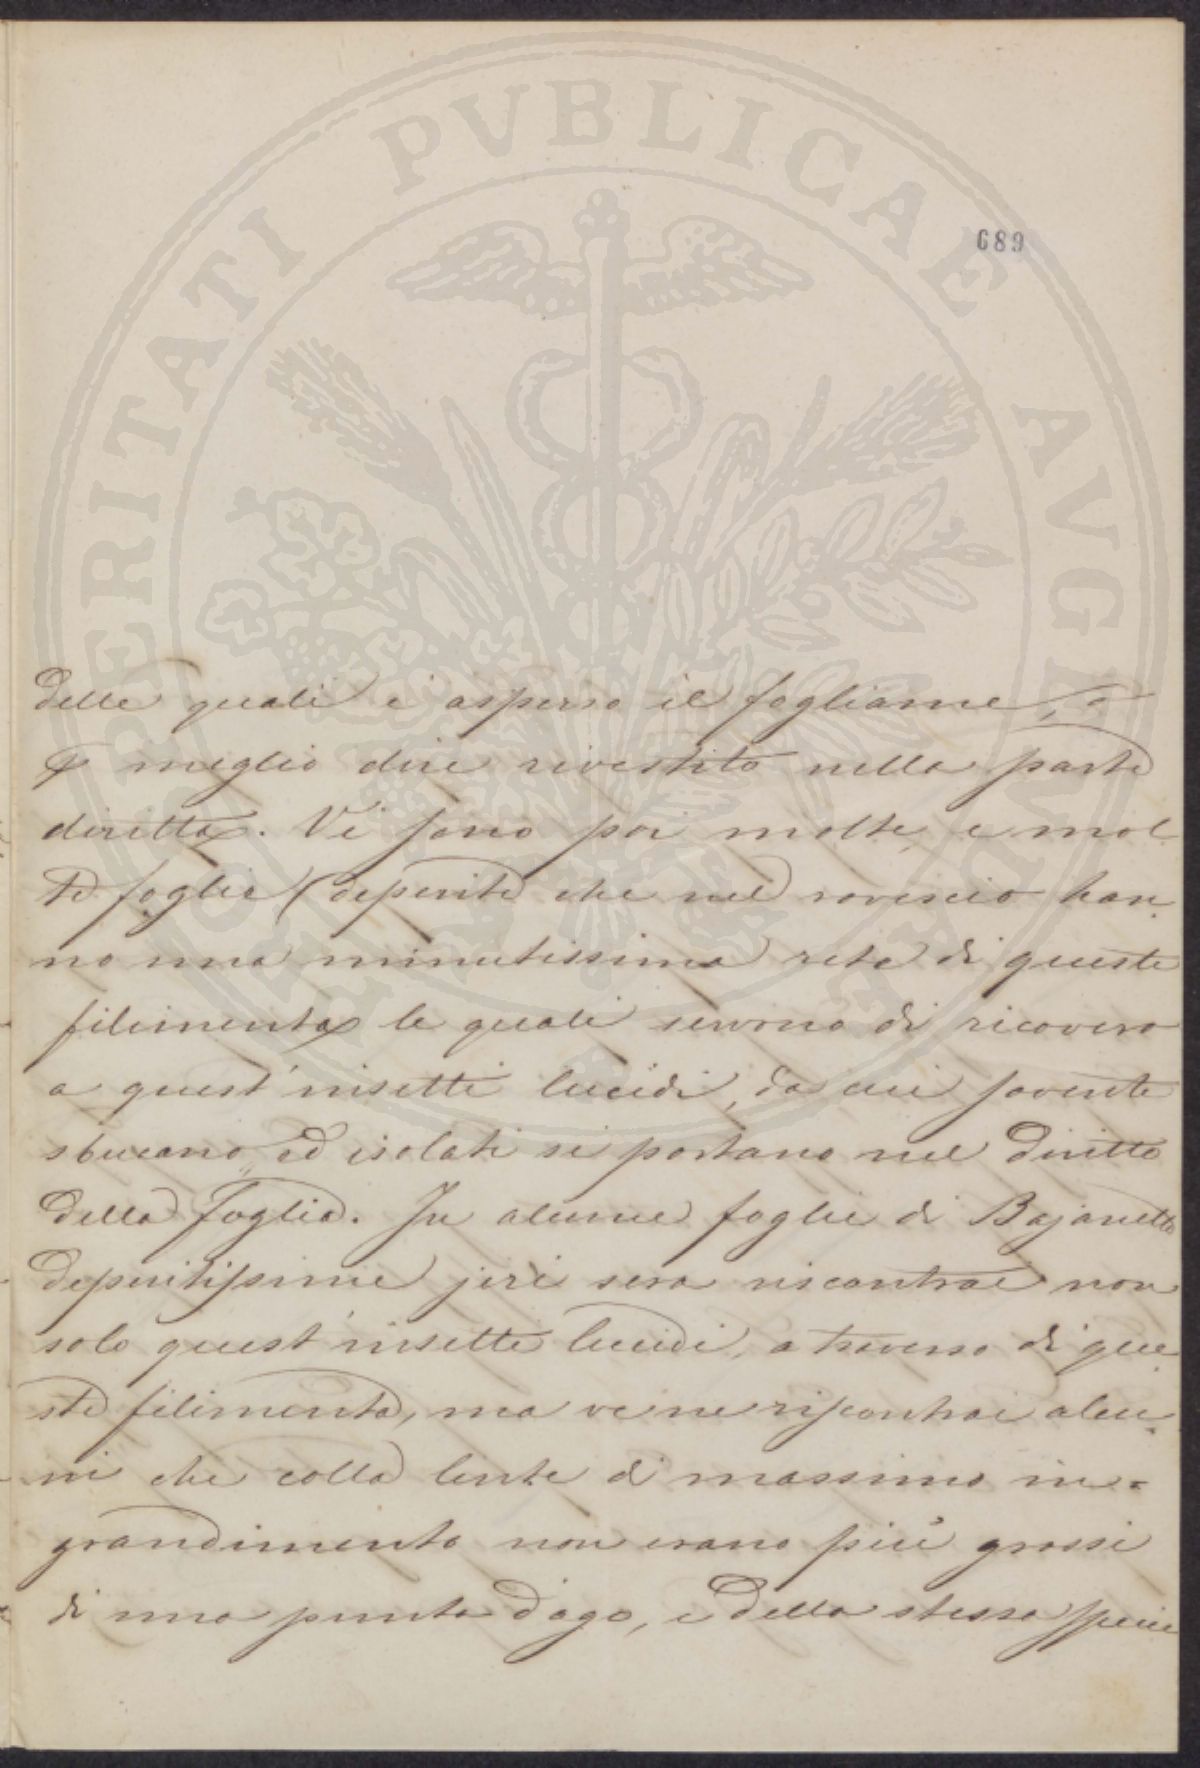 PROSPERITATI PVBLICAE AVGENDAE
689
delle quali è asperso il fogliame, o
p meglio dire rivestito nella parte
diritta. Vi sono poi molte, e mol
te foglie (deperite che nel rovescio han-
no una minutissima rete di queste
filimenta le quali servono di ricovero
a quest'insetti lucidi, da cui sovente
sbucano, ed isolati si portano nel diritto
della foglia. In alcune foglie di Bajanetto
deperitissime jeri sera riscontrai non
solo quest'insetti lucidi, a traverso di que-
ste filimenta, ma ve ne riscontrai alcu-
ni che colla lente di massimo in-
grandimento non erano più grossi
di una punta d'ago, e della stessa specie